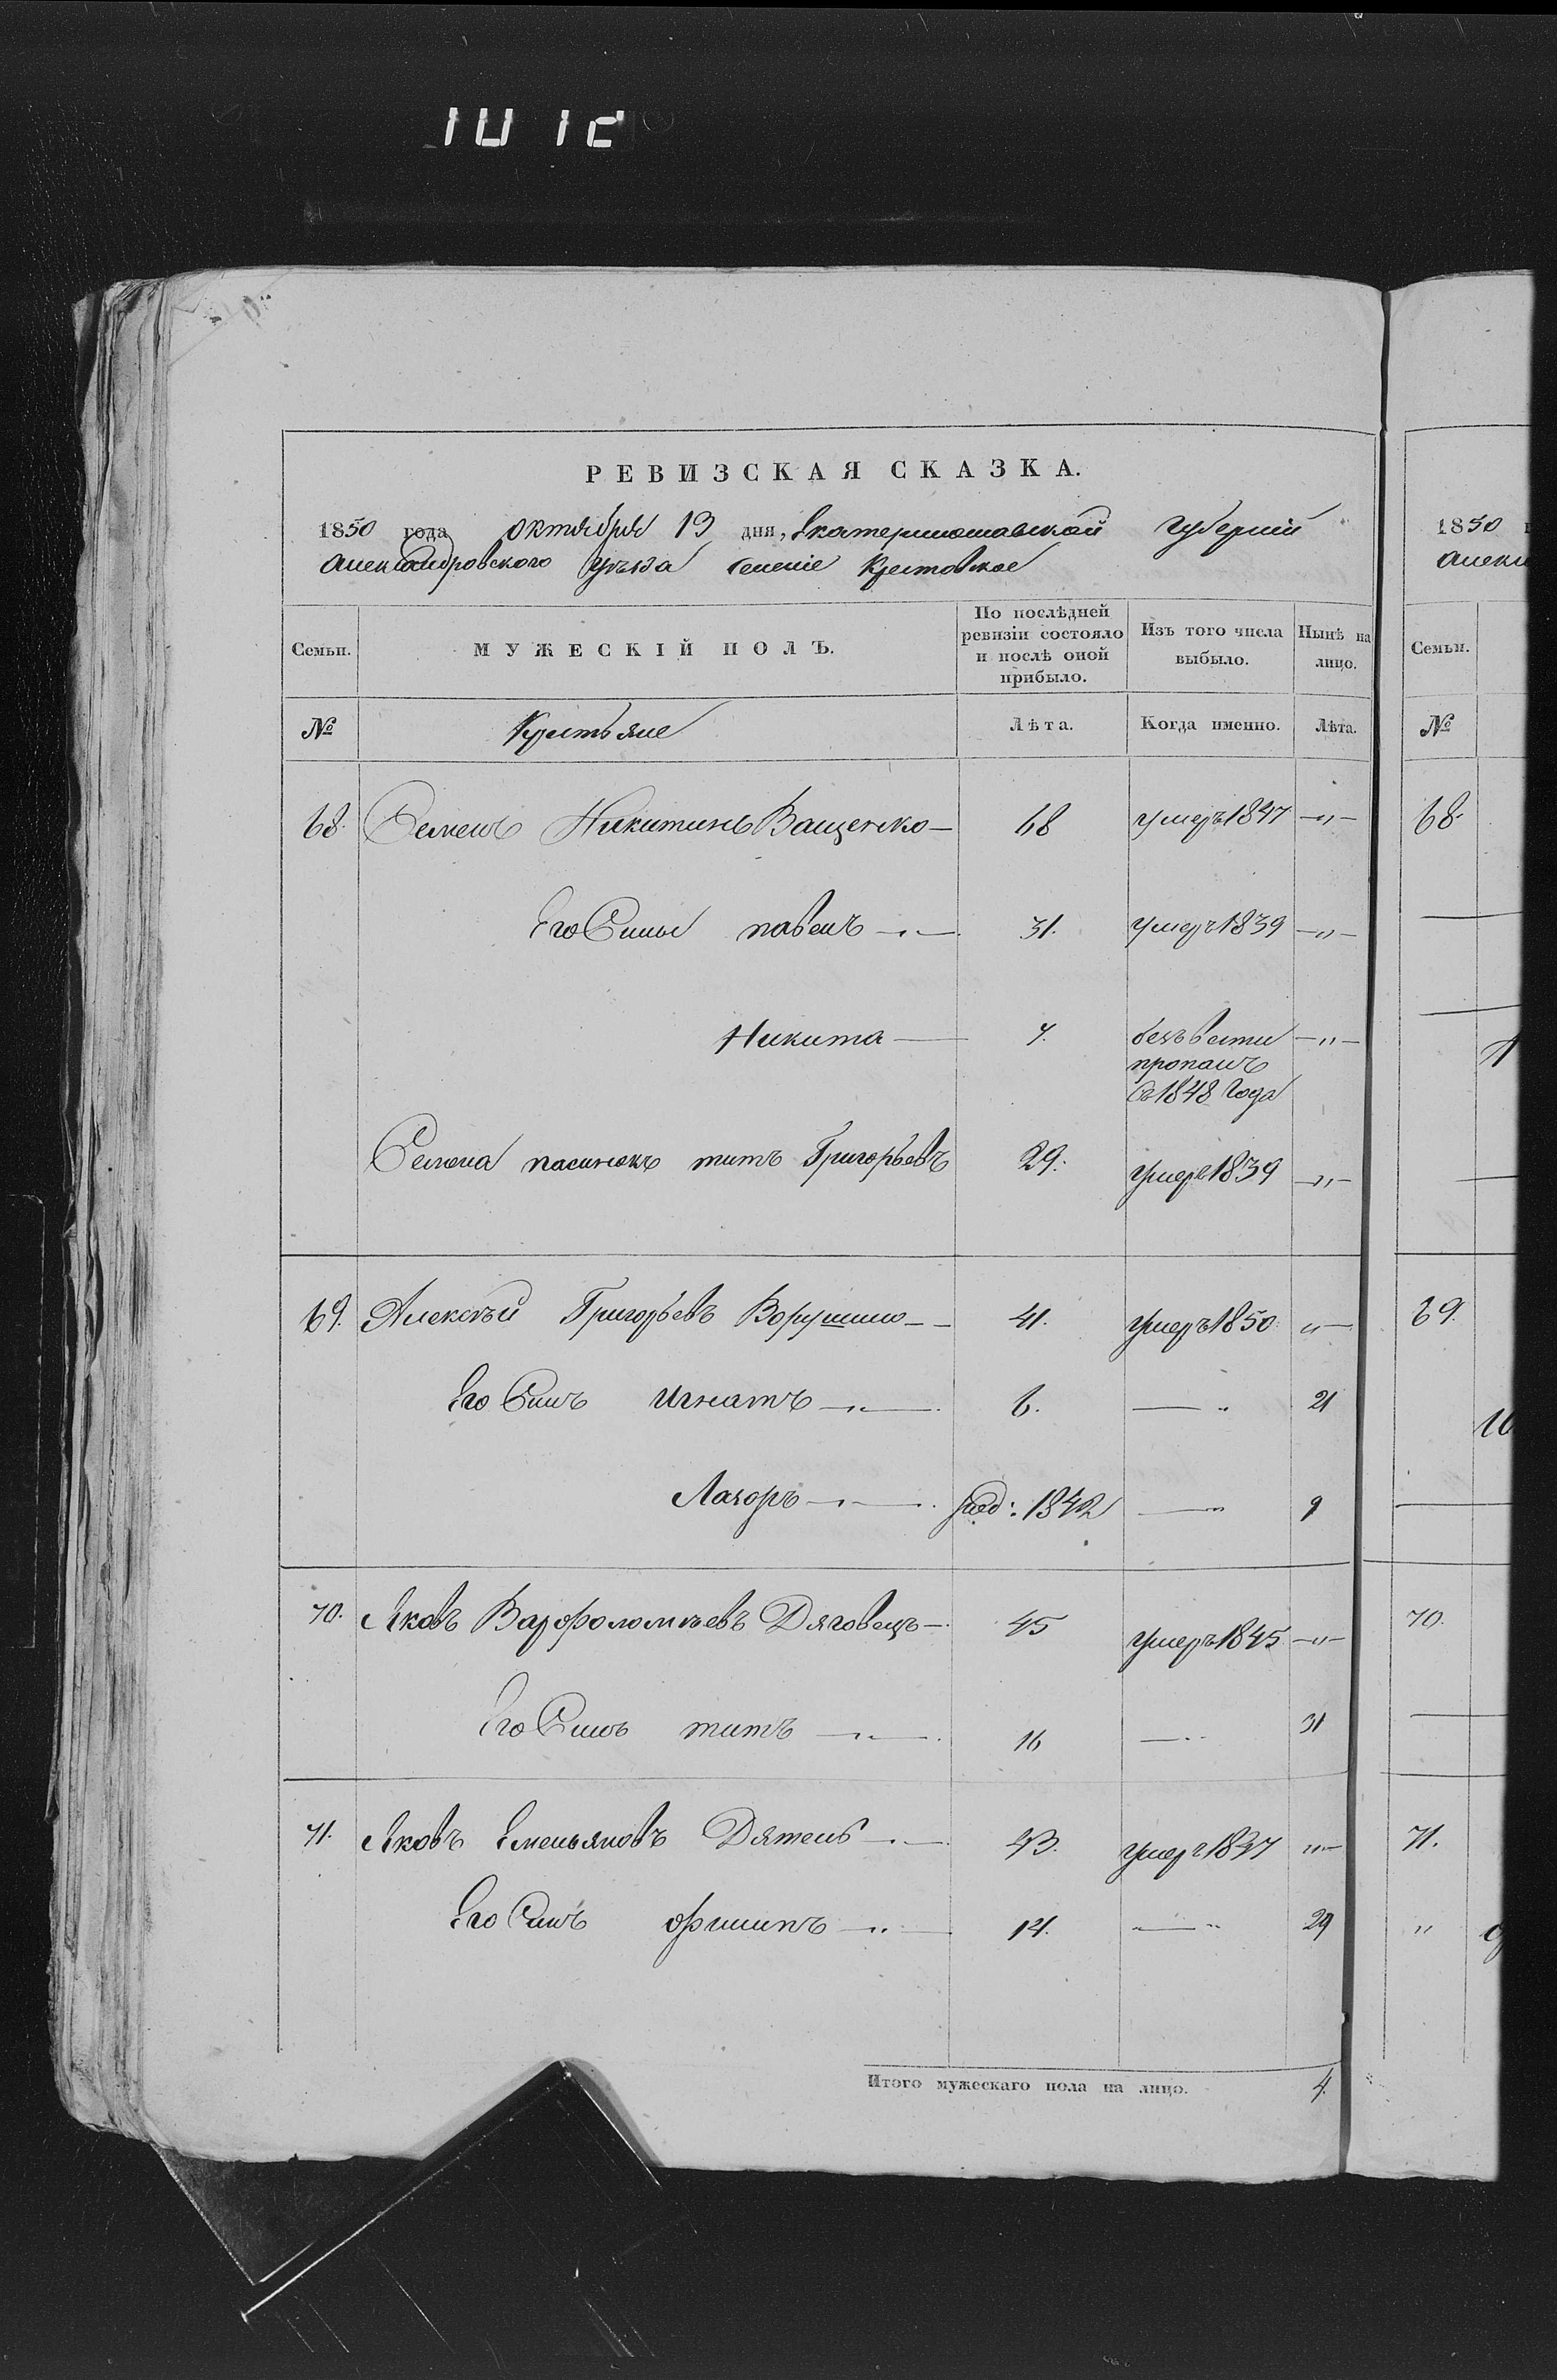 РЕВИЗСКАЯ СКАЗКА.
1850 года октября 13 дня, Екатеринославской Губернiи
Александровского уѣзда селенiе Крестовское
Семьи. МУЖЕСКIЙ ПОЛЪ. По послѣдней ревизiи состояло и послѣ оной прибыло. Изъ того числа выбыло. Нынѣ на лицо.
№ Крестьяне Лѣта. Когда именно. Лѣта.
68. Семенъ Никитинъ Ващенко — 68 умеръ 1847 — " —
Его Сыны павелъ — 31. умеръ 1839 — " —
Никита — 7. безъ вести пропалъ съ 1848 года — " —
Семена пасинокъ титъ Григорьевъ 29. умеръ 1839 — " —
69. Алексѣй Григорьевъ — 41. умеръ 1850 " —
Его Сынъ Игнатъ — 6. — " 21
Лазоръ — род: 1842 — " 9
70. Яковъ Варфоломѣевъ Дяговецъ — 45 умеръ 1845 — " —
Его Сынъ титъ — 16 — " 31
71. Яковъ Емельяновъ Дятелъ — 43. умеръ 1847 " —
Его Сынъ филипъ — 14. — " 29
Итого мужескаго пола на лицо. 4.
1850
Семьи.
№
68.
69.
70.
71.
"